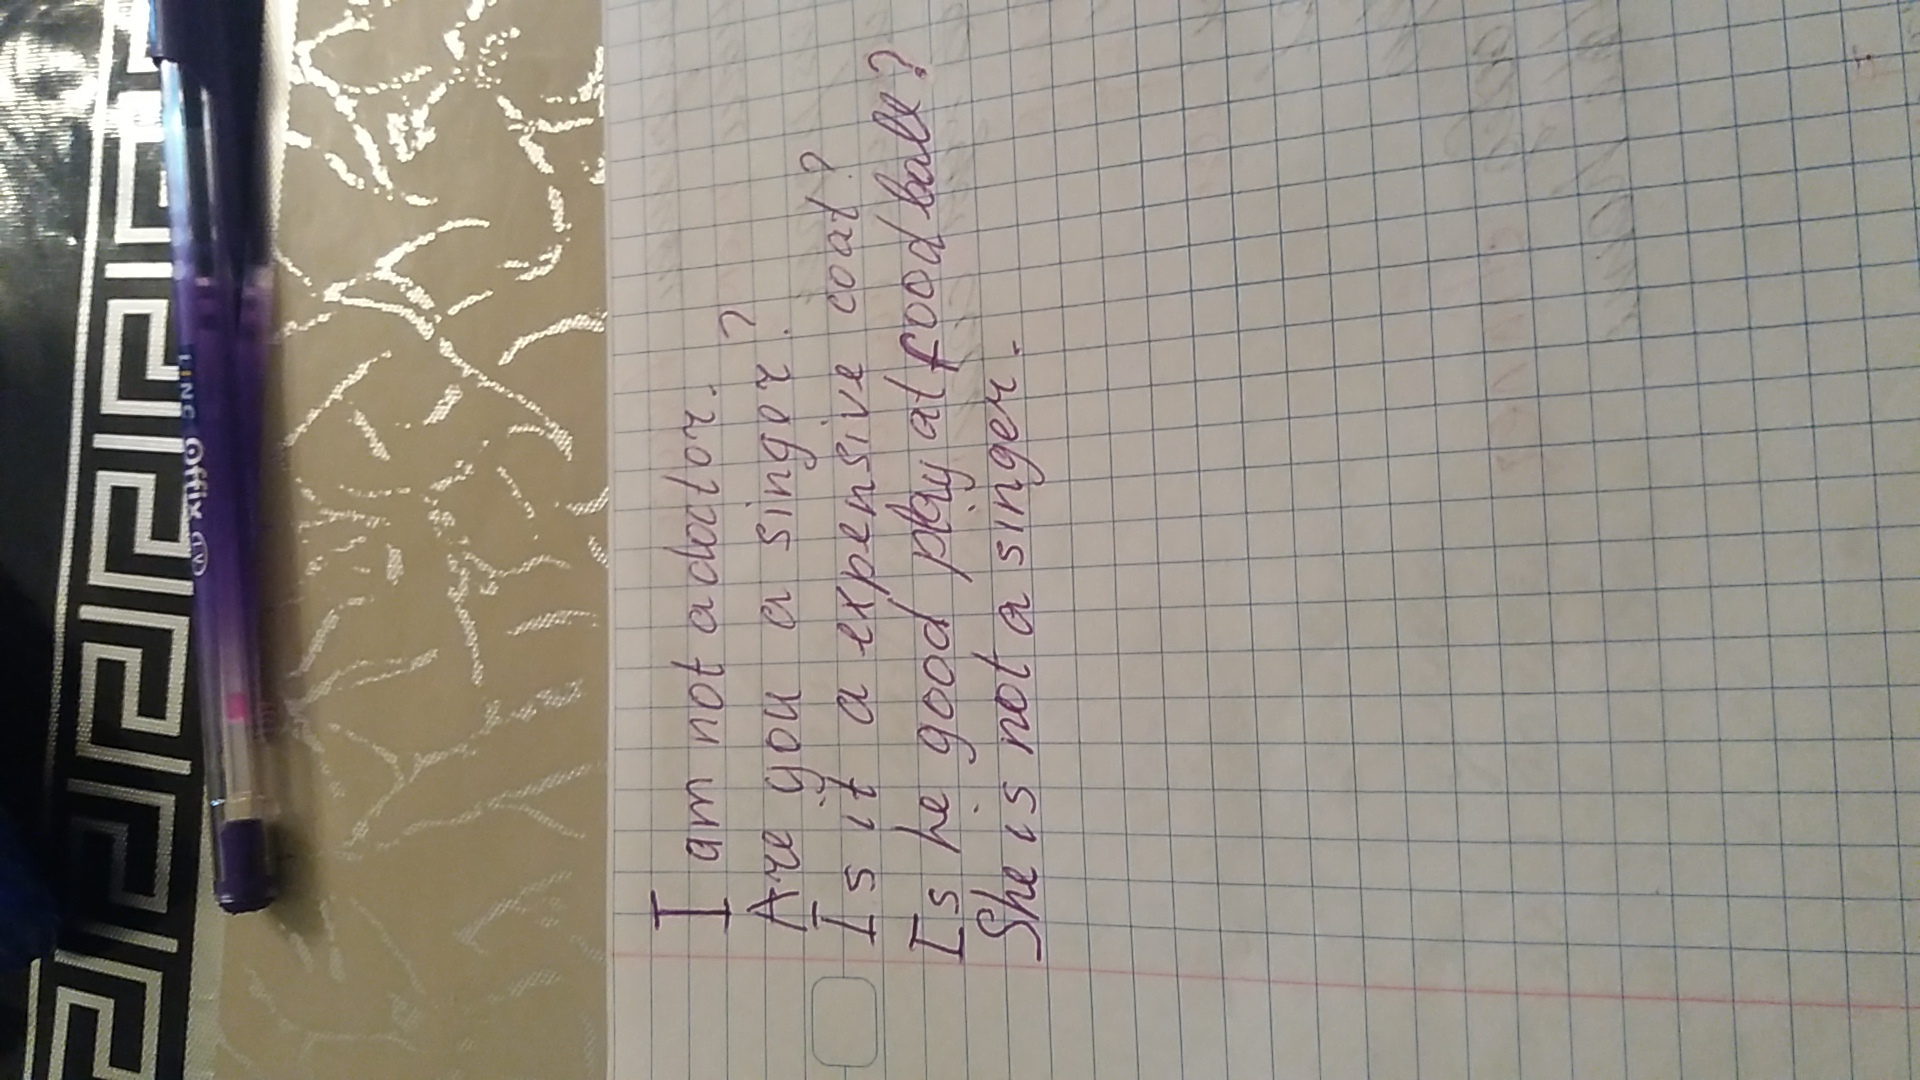 I am not a doctor.
Are you a singor?
Is it a expensive coat?
Is he good play at foodball?
She is not a singer.
LINC Offix